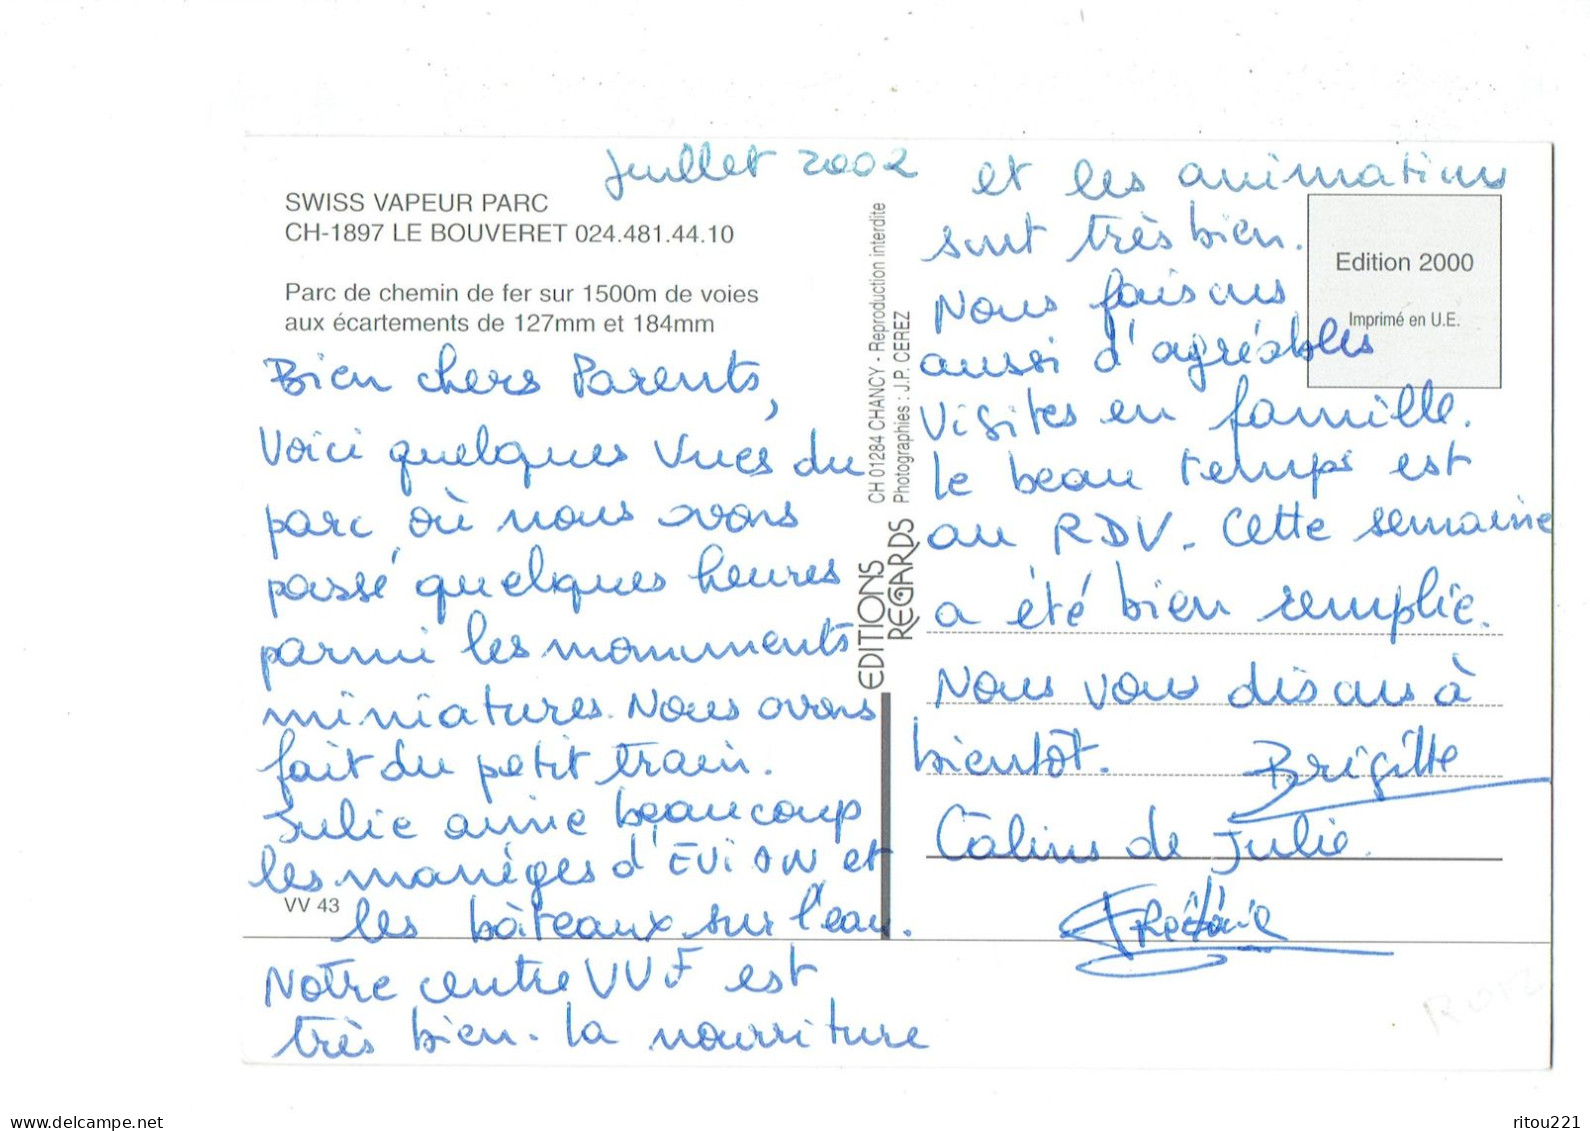 Juillet 2002
SWISS VAPEUR PARC
CH-1897 LE BOUVERET 024.481.44.10
Parc de chemin de fer sur 1500m de voies
aux écartements de 127mm et 184mm
Bien chers Parents,
Voici quelques vues du
parc où nous avons
passé quelques heures
parmi les monuments
miniatures. Nous avons
fait du petit train.
Julie aime beaucoup
les manèges d'EViAN et
VV 43
les bâteaux sur l'eau.
Notre centre VVF est
très bien. La nourriture
EDITIONS
REGARDS
CH 01284 CHANCY - Reproduction interdite
Photographies : J.P. CEREZ
Edition 2000
Imprimé en U.E.
et les animations
sont très bien.
Nous faisons
aussi d'agréables
visites en famille.
Le beau temps est
au RDV. Cette semaine
a été bien remplie.
Nous vous disons à
bientôt. Brigitte
Câlins de Julie.
delcampe.net
ritou221